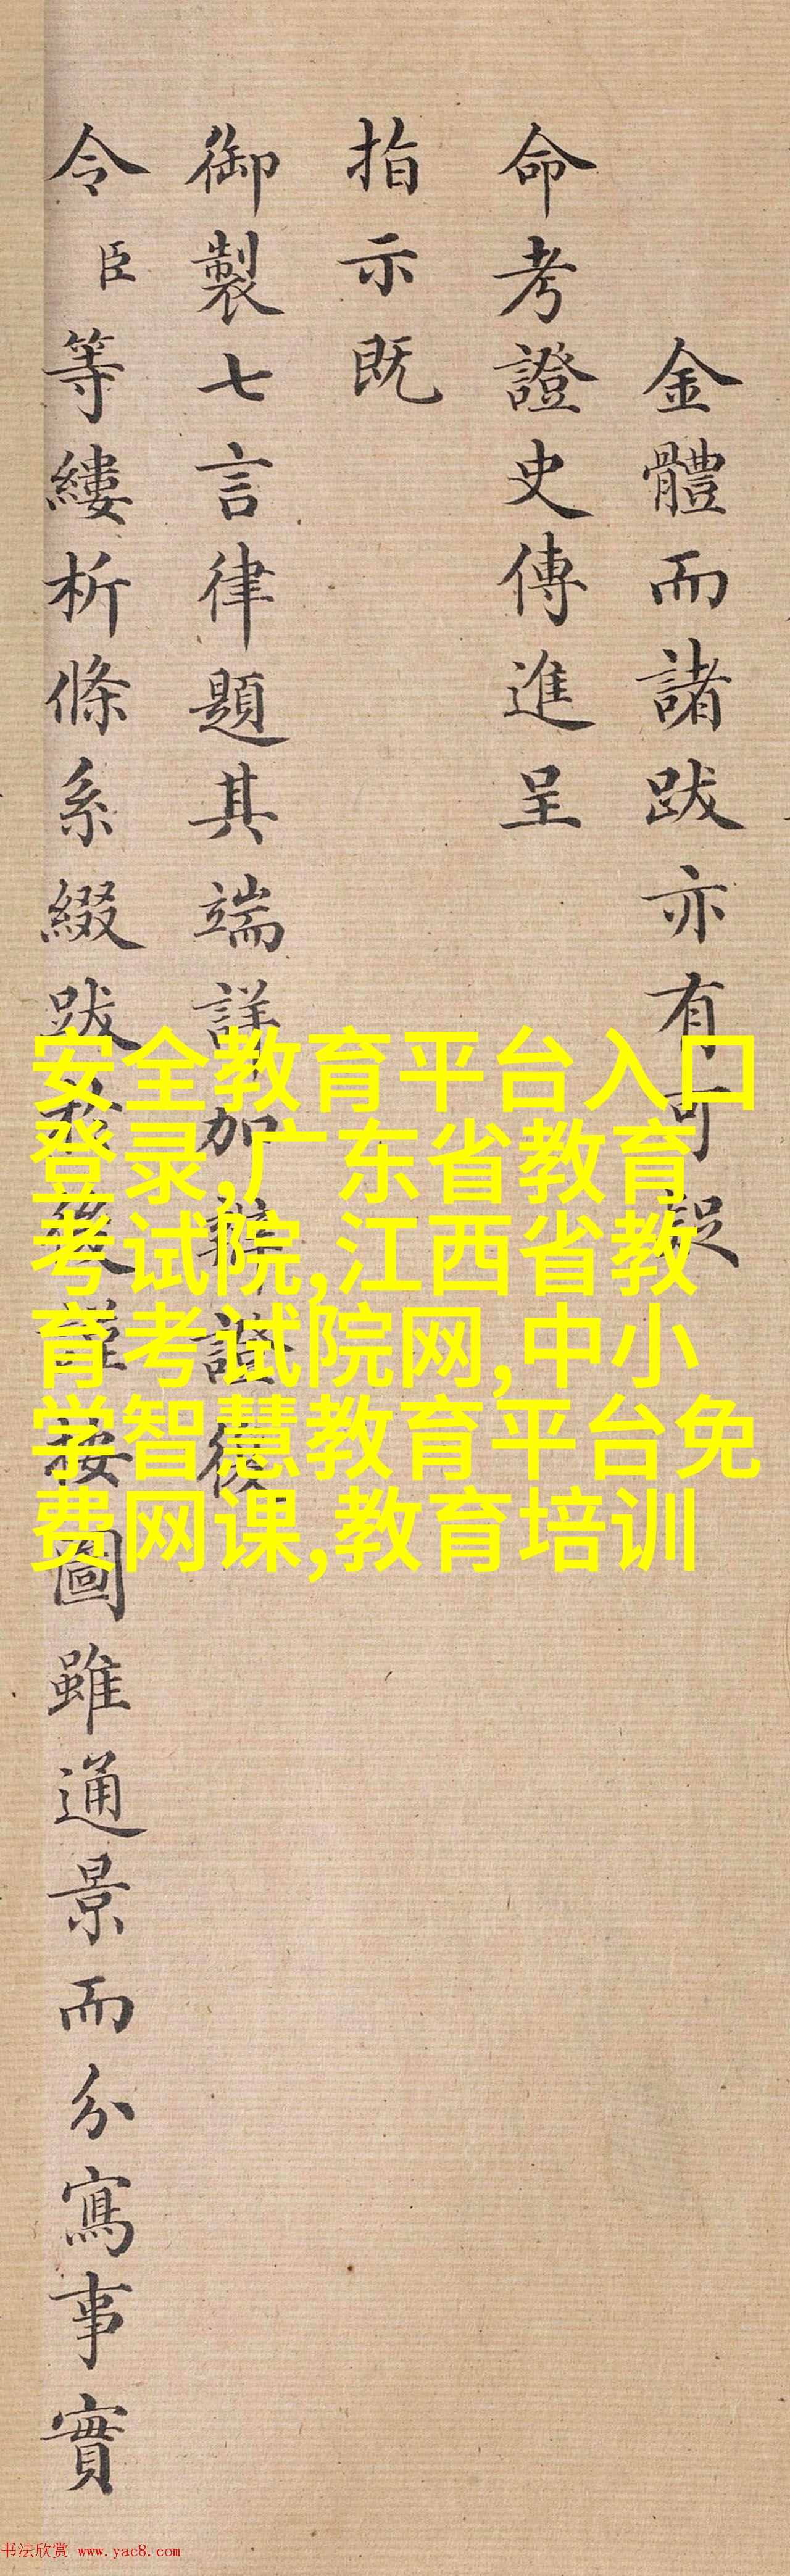 金體而諸跋亦有可
命考證史傳進呈
指示既
御製七言律題其端詳加證復
令臣等縷析條系綴跋於後謹按圖雖通景而分寫事實
安全教育平台入口
登录,广东省教育
考试院,江西省教
育考试院网,中小
学智慧教育平台免
费网课,教育培训
书法欣赏 www.yac8.com